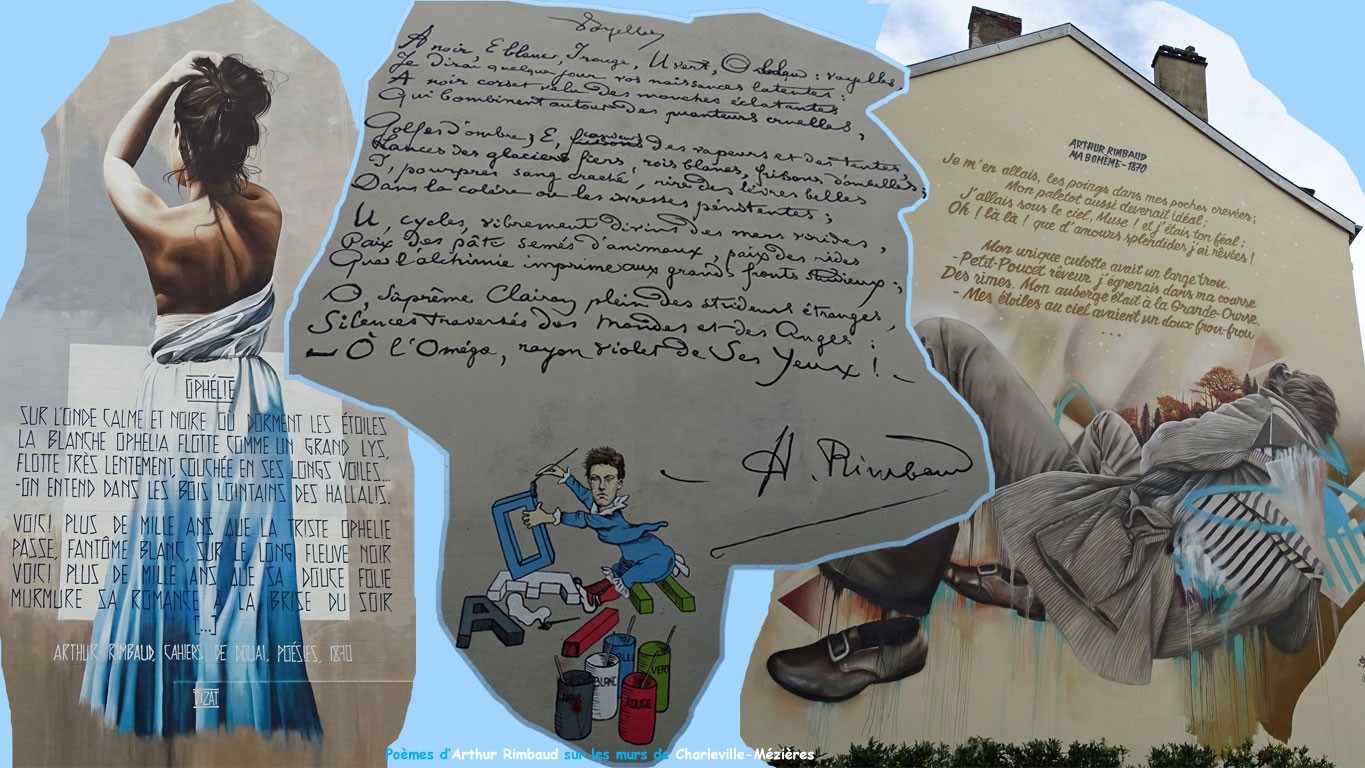 OPHÉLIE
SUR L'ONDE CALME ET NOIRE OÙ DORMENT LES ÉTOILES
LA BLANCHE OPHELIA FLOTTE COMME UN GRAND LYS,
FLOTTE TRÈS LENTEMENT, COUCHÉE EN SES LONGS VOILES...
-ON ENTEND DANS LES BOIS LOINTAINS DES HALLALIS.
VOICI PLUS DE MILLE ANS QUE LA TRISTE OPHELIE
PASSE, FANTÔME BLANC, SUR LE LONG FLEUVE NOIR
VOICI PLUS DE MILLE ANS QUE SA DOUCE FOLIE
MURMURE SA ROMANCE À LA BRISE DU SOIR
[...]
ARTHUR RIMBAUD, CAHIERS DE DOUAI, POÉSIES, 1870
Voyelles
A noir, E blanc, I rouge, U vert, O bleu : voyelles,
Je dirai quelque jour vos naissances latentes :
A noir corset velu des mouches éclatantes
Qui bombinent autour des puanteurs cruelles,
Golfes d'ombre ; E, candeurs des vapeurs et des tentes,
Lances des glaciers fiers, rois blancs, frissons d'ombelles ;
I, pourpres, sang craché, rire des lèvres belles
Dans la colère ou les ivresses pénitentes ;
U, cycles, vibrements divins des mers virides,
Paix des pâtis semés d'animaux, paix des rides
Que l'alchimie imprime aux grands fronts studieux ;
O, Suprême Clairon plein des strideurs étranges,
Silences traversés des Mondes et des Anges :
— O l'Oméga, rayon violet de Ses Yeux ! —
A. Rimbaud
NOIR
BLANC
BLEU
ROUGE
VERT
ARTHUR RIMBAUD
MA BOHÈME - 1870
Je m'en allais, les poings dans mes poches crevées ;
Mon paletot aussi devenait idéal ;
J'allais sous le ciel, Muse ! et j'étais ton féal ;
Oh ! là là ! que d'amours splendides j'ai rêvées !
Mon unique culotte avait un large trou.
- Petit-Poucet rêveur, j'égrenais dans ma course
Des rimes. Mon auberge était à la Grande-Ourse.
- Mes étoiles au ciel avaient un doux frou-frou
...
Poèmes d'Arthur Rimbaud sur les murs de Charleville-Mézières